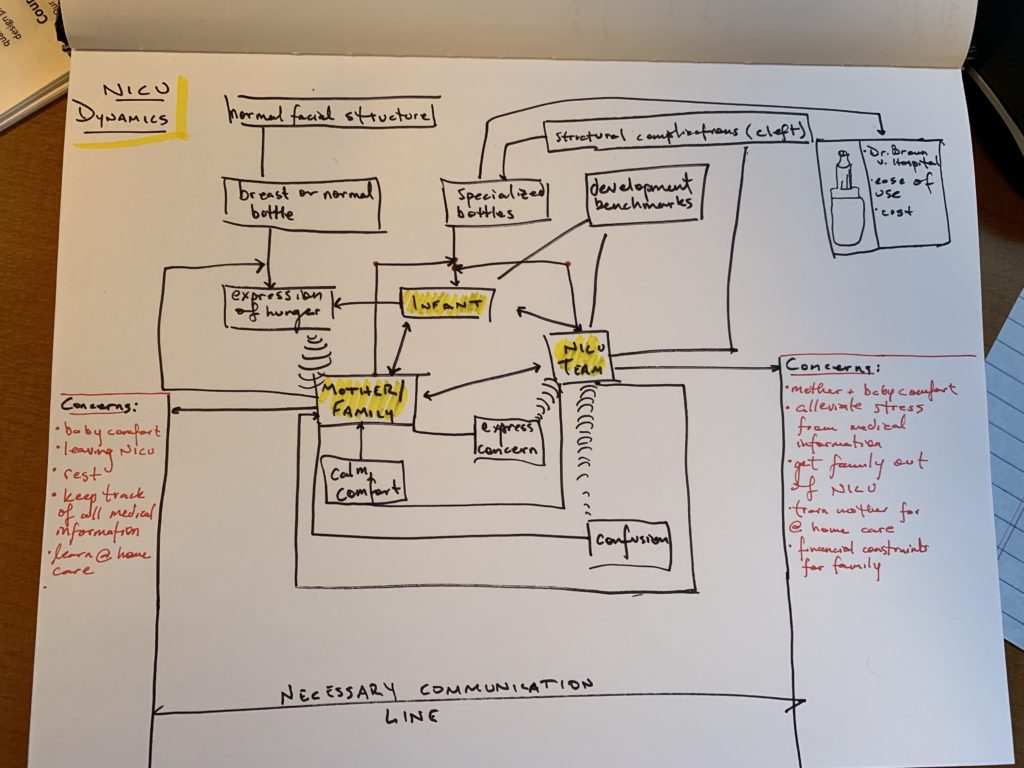 NICU
DYNAMICS
normal facial structure
structural complications (cleft)
Dr. Brown
v. Hospital
• ease of
use
• cost
breast or normal
bottle
Specialized
bottles
development
benchmarks
expression
of hunger
INFANT
NICU
TEAM
MOTHER/
FAMILY
express
concern
Calm,
comfort
confusion
Concerns:
• baby comfort
• leaving NICU
• rest
• keep track
of all medical
information
• learn @ home
care
Concerns:
• mother + baby comfort
• alleviate stress
from medical
information
• get family out
of NICU
• train mother for
@ home care
• financial constraints
for family
NECESSARY COMMUNICATION
LINE